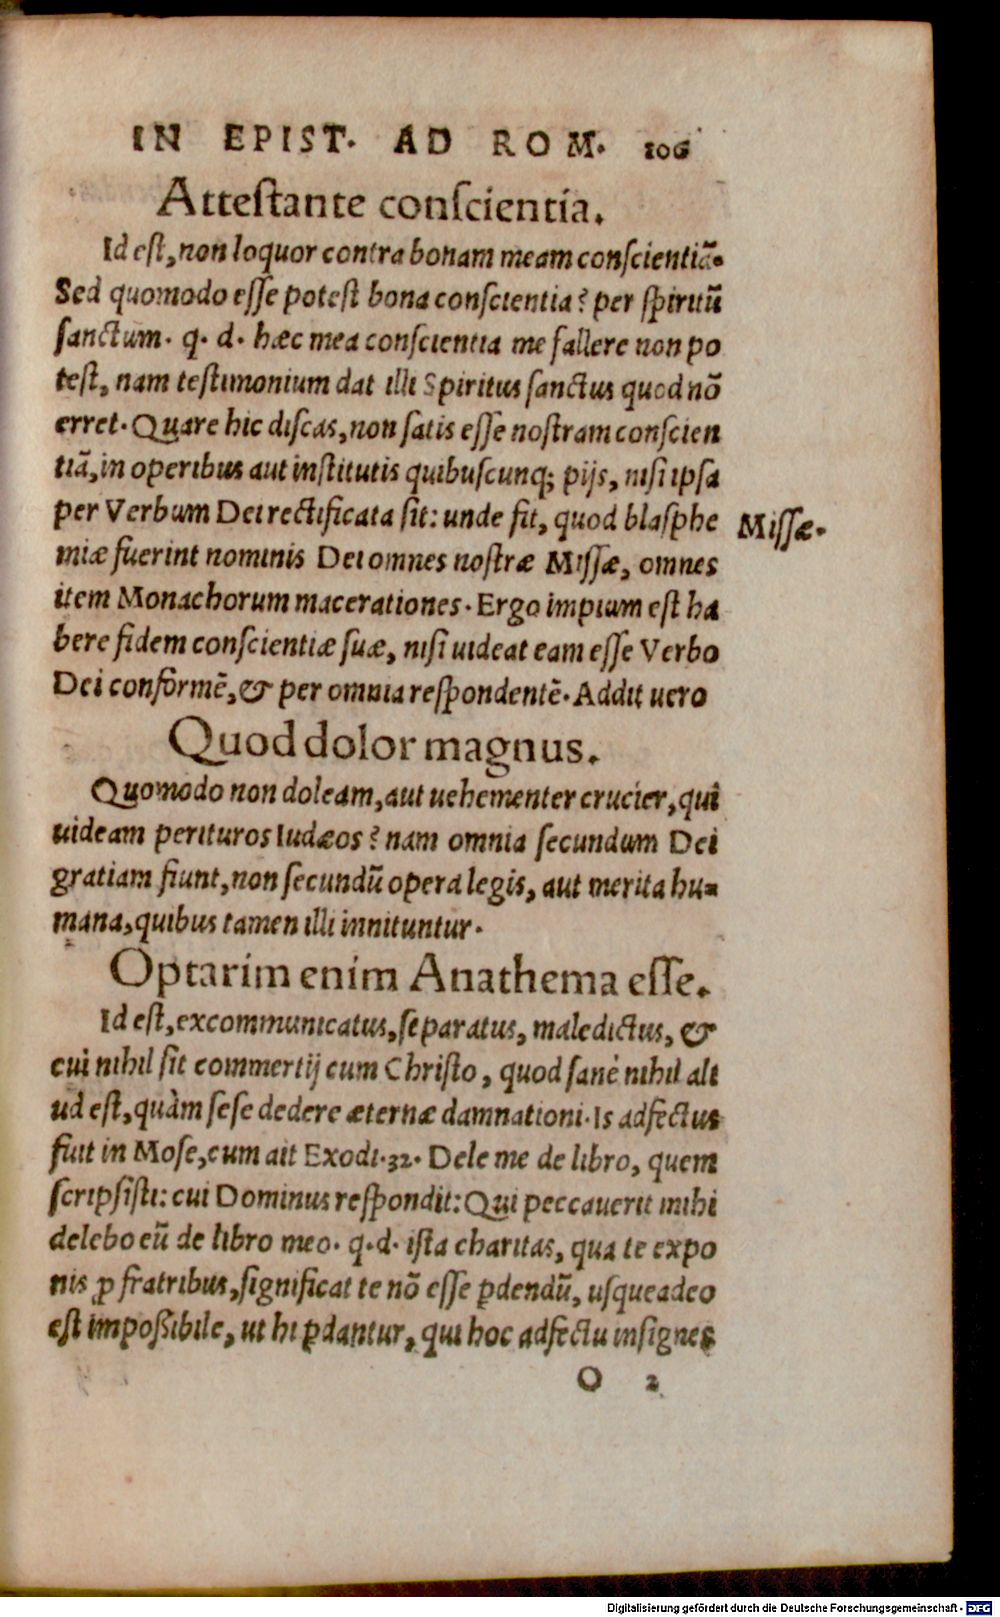 IN EPIST. AD ROM. 106
Attestante conscientia.
Id est, non loquor contra bonam meam conscientiã.
Sed quomodo esse potest bona conscientia? per spiritũ
sanctum. q. d. hæc mea conscientia me fallere non po
test, nam testimonium dat illi Spiritus sanctus quod nõ
erret. Quare hic discas, non satis esse nostram conscien
tiã, in operibus aut institutis quibuscunq; pijs, nisi ipsa
per Verbum Dei rectificata sit: unde fit, quod blasphe
Missæ.
miæ fuerint nominis Dei omnes nostræ Missæ, omnes
item Monachorum macerationes. Ergo impium est ha
bere fidem conscientiæ suæ, nisi uideat eam esse Verbo
Dei conformẽ, & per omnia respondentẽ. Addit uero
Quod dolor magnus.
Quomodo non doleam, aut uehementer crucier, qui
uideam perituros Iudæos? nam omnia secundum Dei
gratiam fiunt, non secundũ opera legis, aut merita hu-
mana, quibus tamen illi innituntur.
Optarim enim Anathema esse.
Id est, excommunicatus, separatus, maledictus, &
cui nihil sit commertij cum Christo, quod sanè nihil ali
ud est, quàm sese dedere æternæ damnationi. Is adfectus
fuit in Mose, cum ait Exodi. 32. Dele me de libro, quem
scripsisti: cui Dominus respondit: Qui peccauerit mihi
delebo eũ de libro meo. q. d. ista charitas, qua te expo
nis ꝓ fratribus, significat te nõ esse ꝑdendũ, usqueadeo
est impoßibile, ut hi ꝑdantur, qui hoc adfectu insignes
O 2
Digitalisierung gefördert durch die Deutsche Forschungsgemeinschaft - DFG